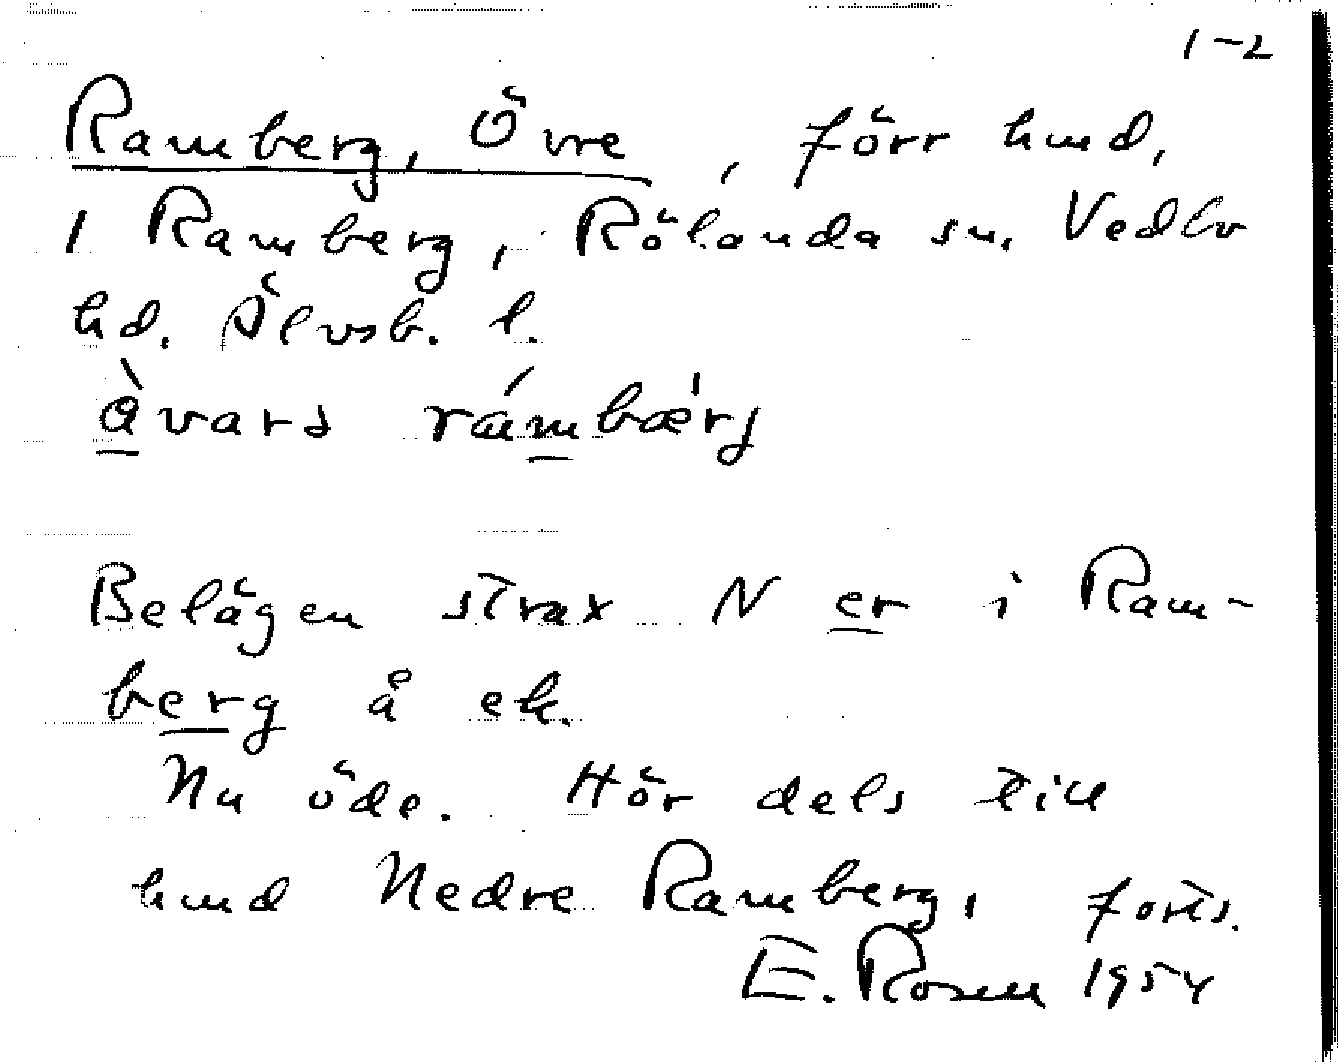 1-2
Ramberg, Övre, förr hmd,
i Ramberg, Rölanda sn. Vedbo
hd. Älvsb. l.
àvarɔ rámbæ̀rj
Belägen strax N er i Ram-
berg å ek.
Nu öde. Hör dels till
hmd Nedre Ramberg, forts.
E. Rosell 1954